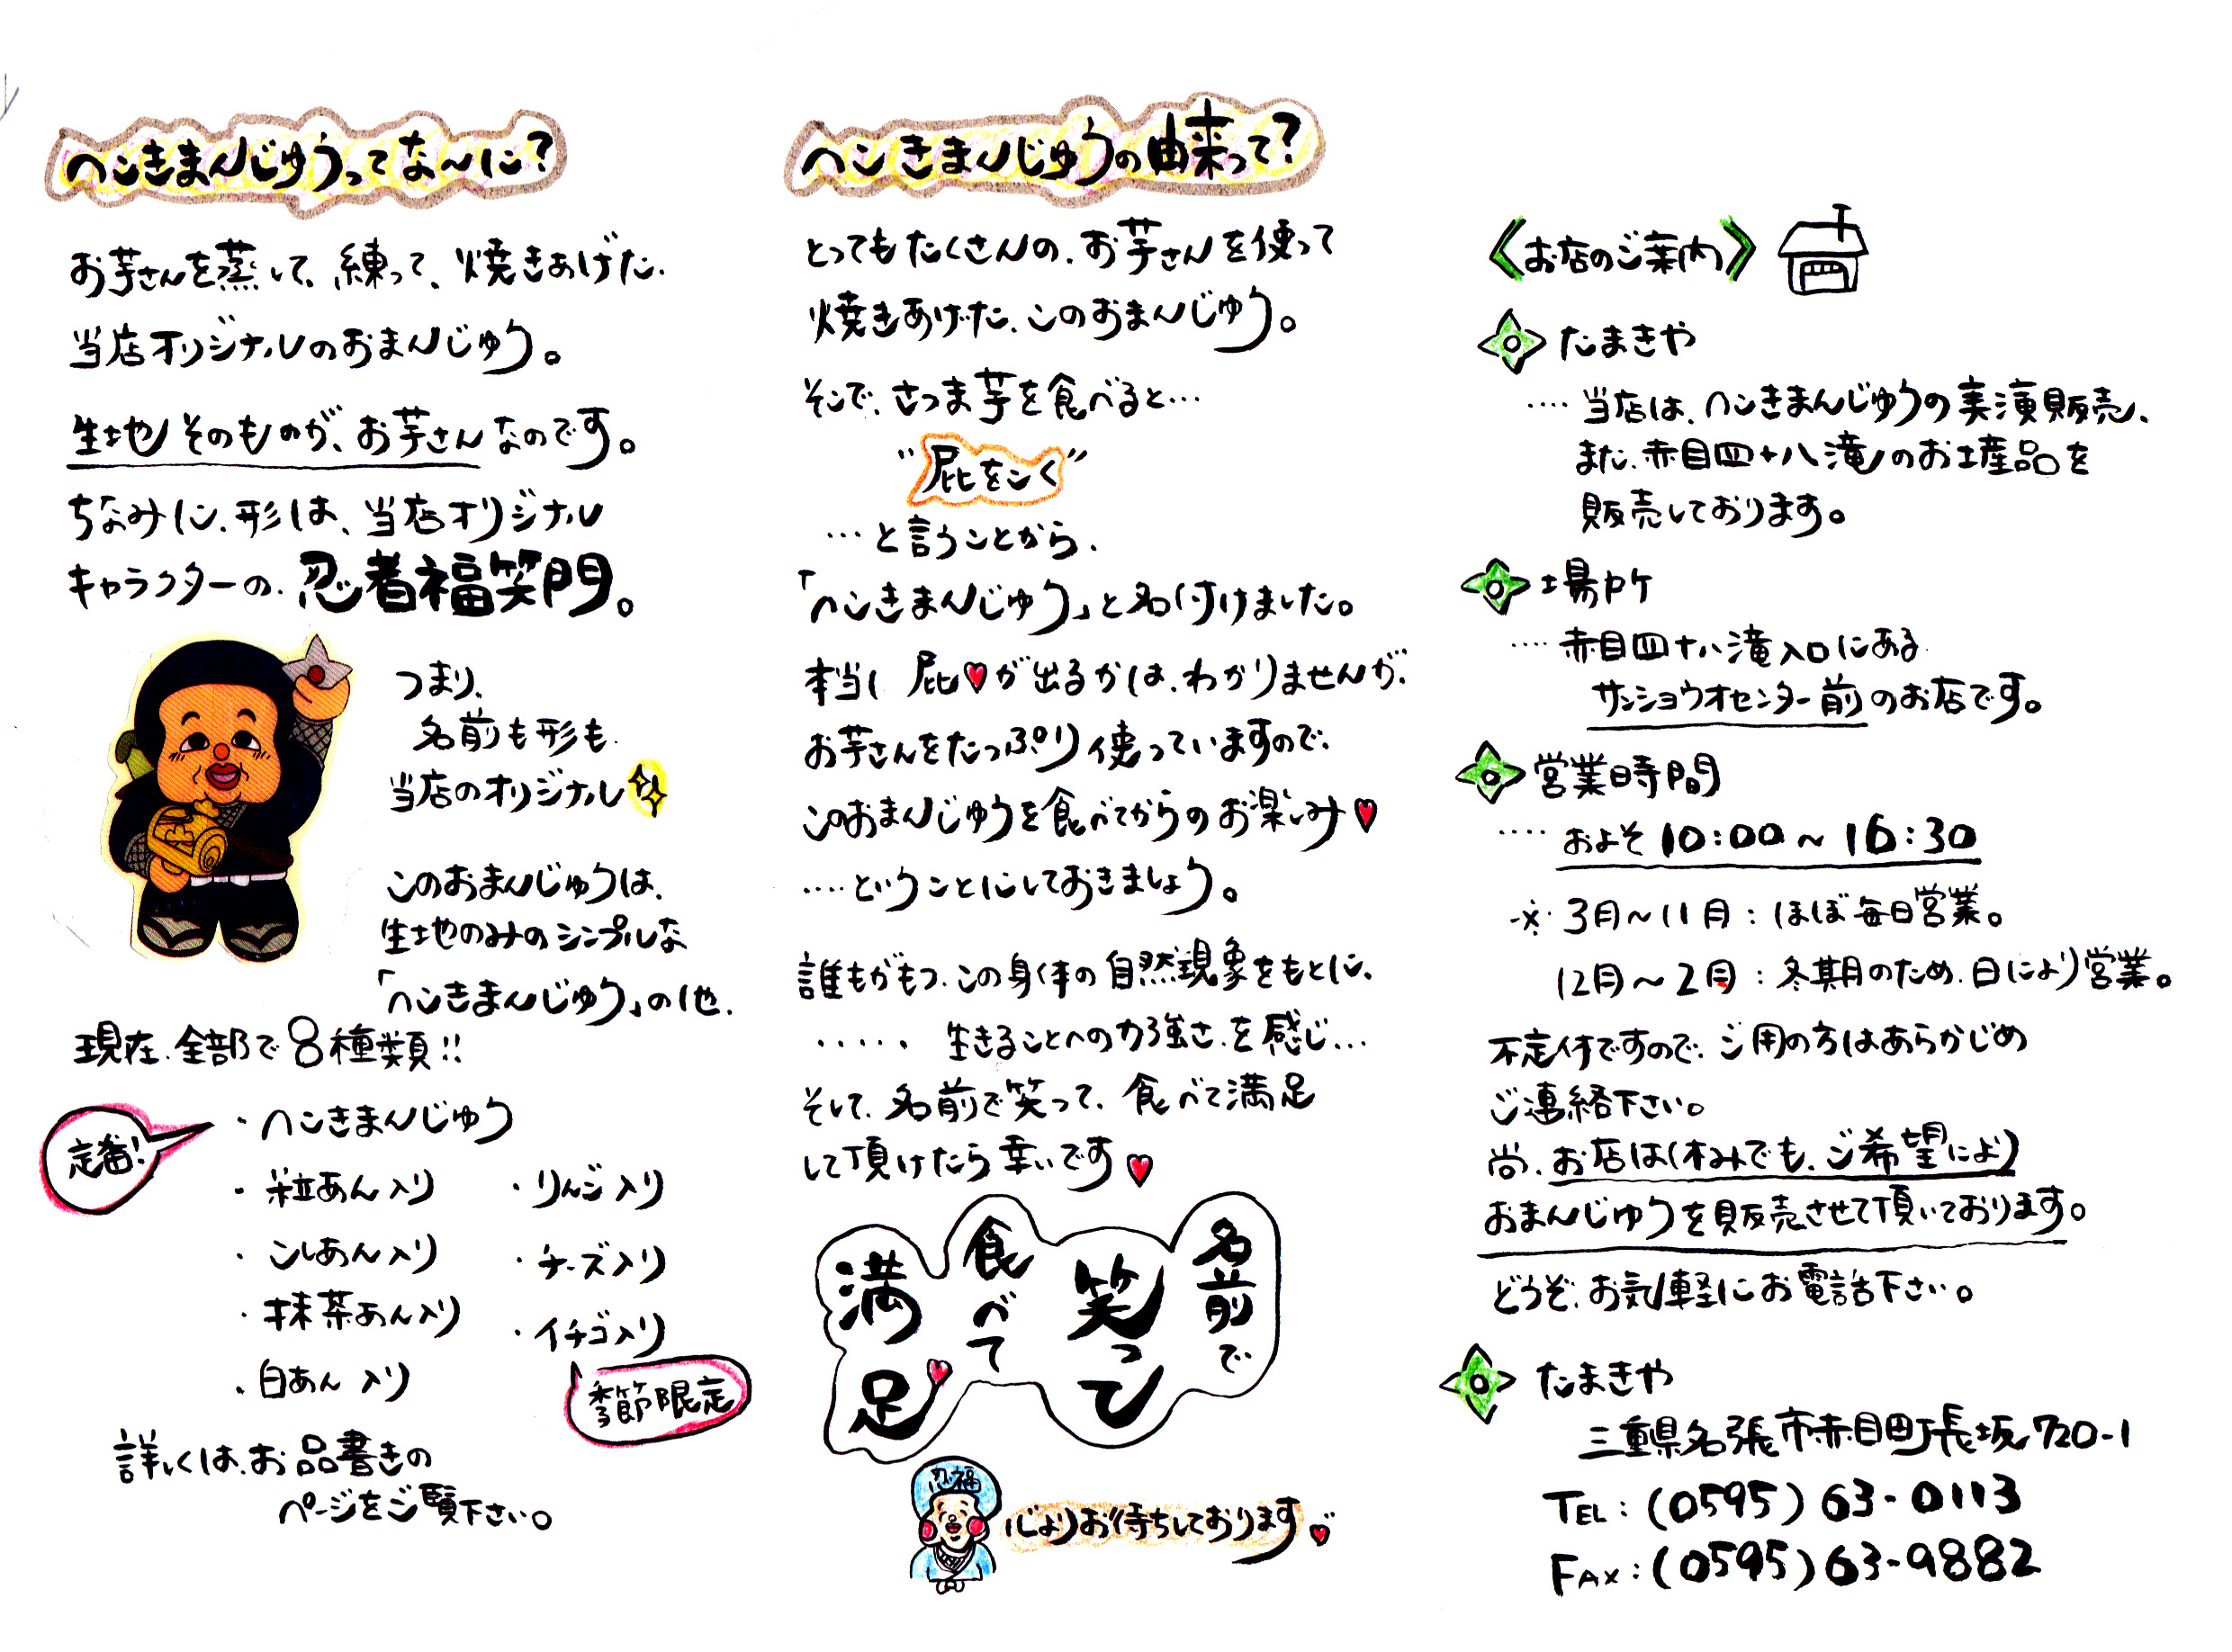 へこきまんじゅうってな〜に?
お芋さんを蒸して、練って、焼きあげた、
当店オリジナルのおまんじゅう。
生地そのものが、お芋さんなのです。
ちなみに、形は、当店オリジナル
キャラクターの、忍者福笑門。
つまり、
名前も形も
当店のオリジナル
このおまんじゅうは、
生地のみのシンプルな
「へこきまんじゅう」の他、
現在、全部で8種類!!
定番!
・へこきまんじゅう
・粒あん入り
・こしあん入り
・抹茶あん入り
・白あん入り
・りんご入り
・チーズ入り
・イチゴ入り
季節限定
詳しくは、お品書きの
ページをご覧下さい。
へこきまんじゅうの由来って?
とってもたくさんの、お芋さんを使って
焼きあげた、このおまんじゅう。
そこで、さつま芋を食べると…
"屁をこく"
…と言うことから、
「へこきまんじゅう」と名付けました。
本当に屁♥が出るかは、わかりませんが、
お芋さんをたっぷり使っていますので、
このおまんじゅうを食べてからのお楽しみ♥
‥‥ということにしておきましょう。
誰もがもつ、この身体の自然現象をもとに、
‥‥‥生きることへの力強さ、を感じ…
そして、名前で笑って、食べて満足
して頂けたら幸いです♥
名前で
笑って
食べて
満足♥
忍福
心よりお待ちしております♥
《お店のご案内》
たまきや
‥‥当店は、へこきまんじゅうの実演販売、
また、赤目四十八滝のお土産品を
販売しております。
場所
‥‥赤目四十八滝入口にある
サンショウオセンター前のお店です。
営業時間
‥‥およそ10:00〜16:30
※3月〜11月:ほぼ毎日営業。
12月〜2月:冬期のため、日により営業。
不定休ですので、ご用の方はあらかじめ
ご連絡下さい。
尚、お店は休みでも、ご希望により
おまんじゅうを販売させて頂いております。
どうぞ、お気軽にお電話下さい。
たまきや
三重県名張市赤目町長坂720-1
TEL:(0595)63-0113
FAX:(0595)63-9882